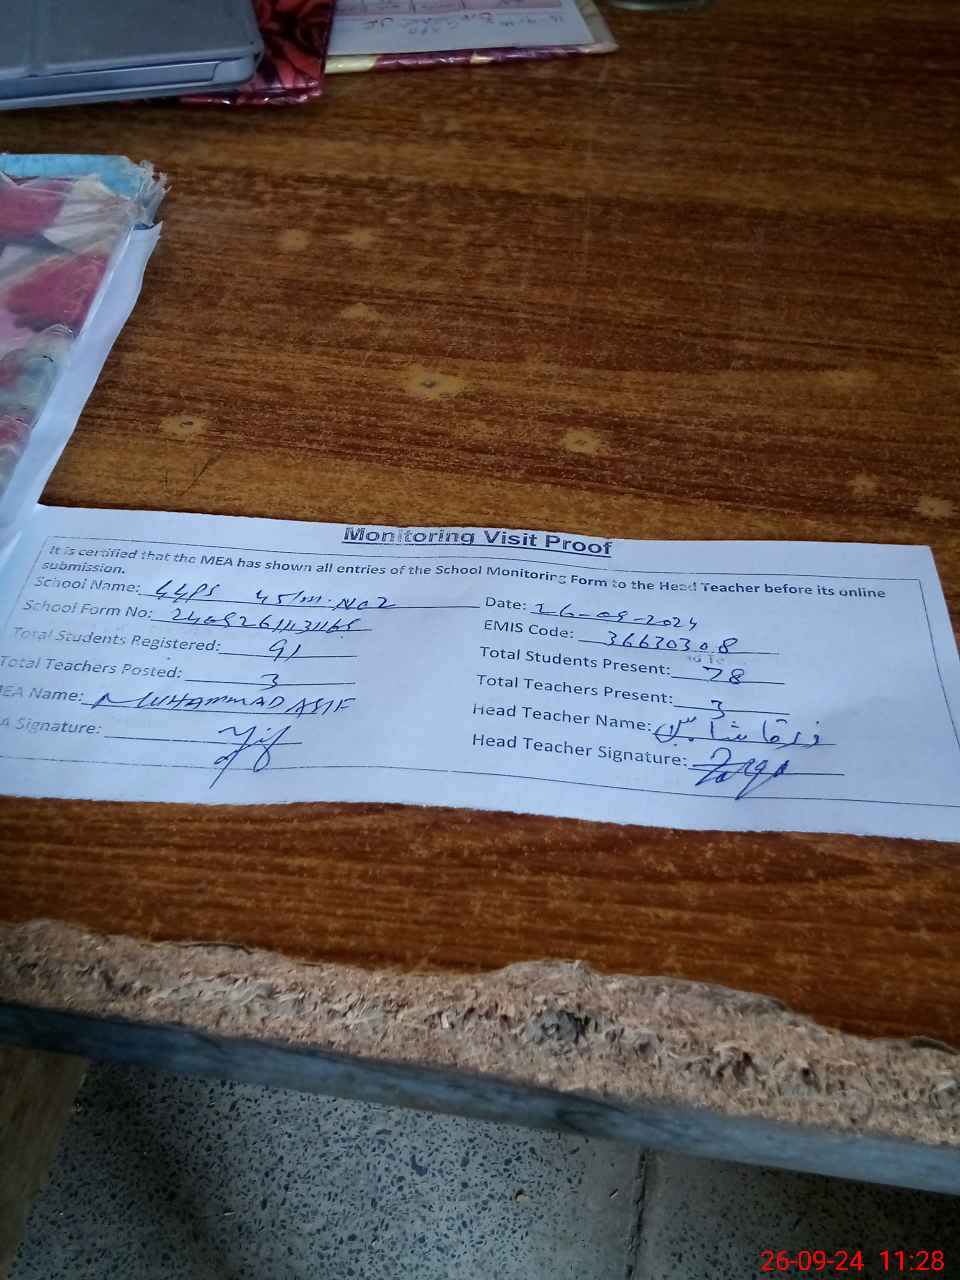 Monitoring Visit Proof
It is certified that the MEA has shown all entries of the School Monitoring Form to the Head Teacher before its online
submission.
School Name: GGPS 45/m. No2
Date: 26-09-2024
School Form No:
EMIS Code: 36630308
Total Students Registered: 91
Total Students Present: 78
Total Teachers Posted: 3
Total Teachers Present: 3
MEA Name: MUHAMMAD ASIF
Head Teacher Name: زرقا شا
A Signature:
Head Teacher Signature: Zarqa
26-09-24 11:28